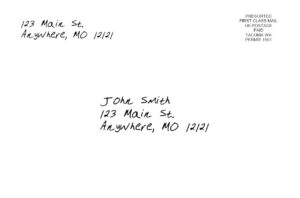 123 Main St.
Anywhere, MO 12121
PRESORTED
FIRST CLASS MAIL
US POSTAGE
PAID
TACOMA WA
PERMIT 1801
John Smith
123 Main St.
Anywhere, MO 12121